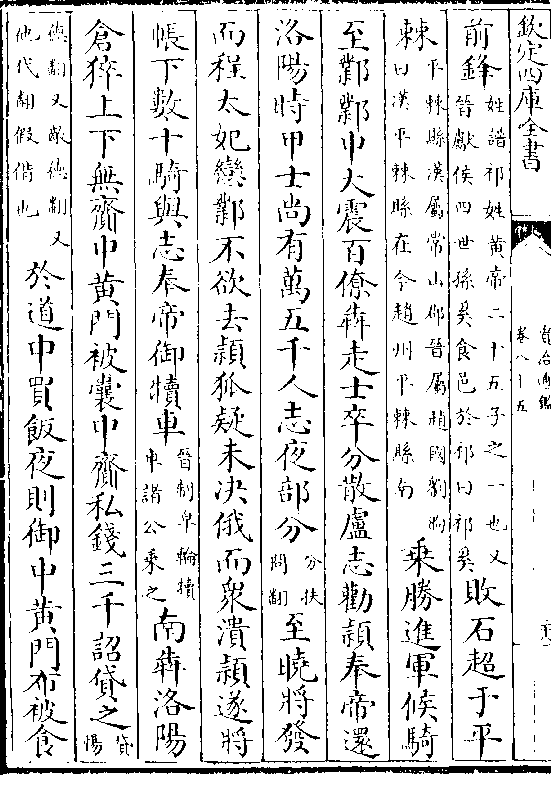 欽定四庫全書
資治通鑑
卷八十五
前鋒姓譜祁姓黃帝二十五子之一也又
晉獻侯四世孫奚食邑於祁曰祁奚敗石超于平
棘平棘縣漢屬常山郡晉屬趙國劉昫
曰漢平棘縣在今趙州平棘縣南乗勝進軍候騎
至鄴鄴中大震百僚犇走士卒分散盧志勸穎奉帝還
洛陽時甲士尚有萬五千人志夜部分分扶
問翻至曉將發
而程太妃戀鄴不欲去穎狐疑未決俄而衆潰穎遂將
帳下數十騎與志奉帝御犢車晉制皁輪犢
車諸公乗之南犇洛陽
倉猝上下無齎中黃門被囊中齎私錢三千詔貸之貸
惕
徳翻又敵徳翻又
他代翻假借也於道中買飯夜則御中黃門布被食